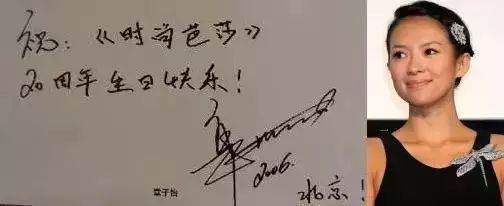 祝:《时尚芭莎》
20周年生日快乐!
章
2006.
章子怡
北京!